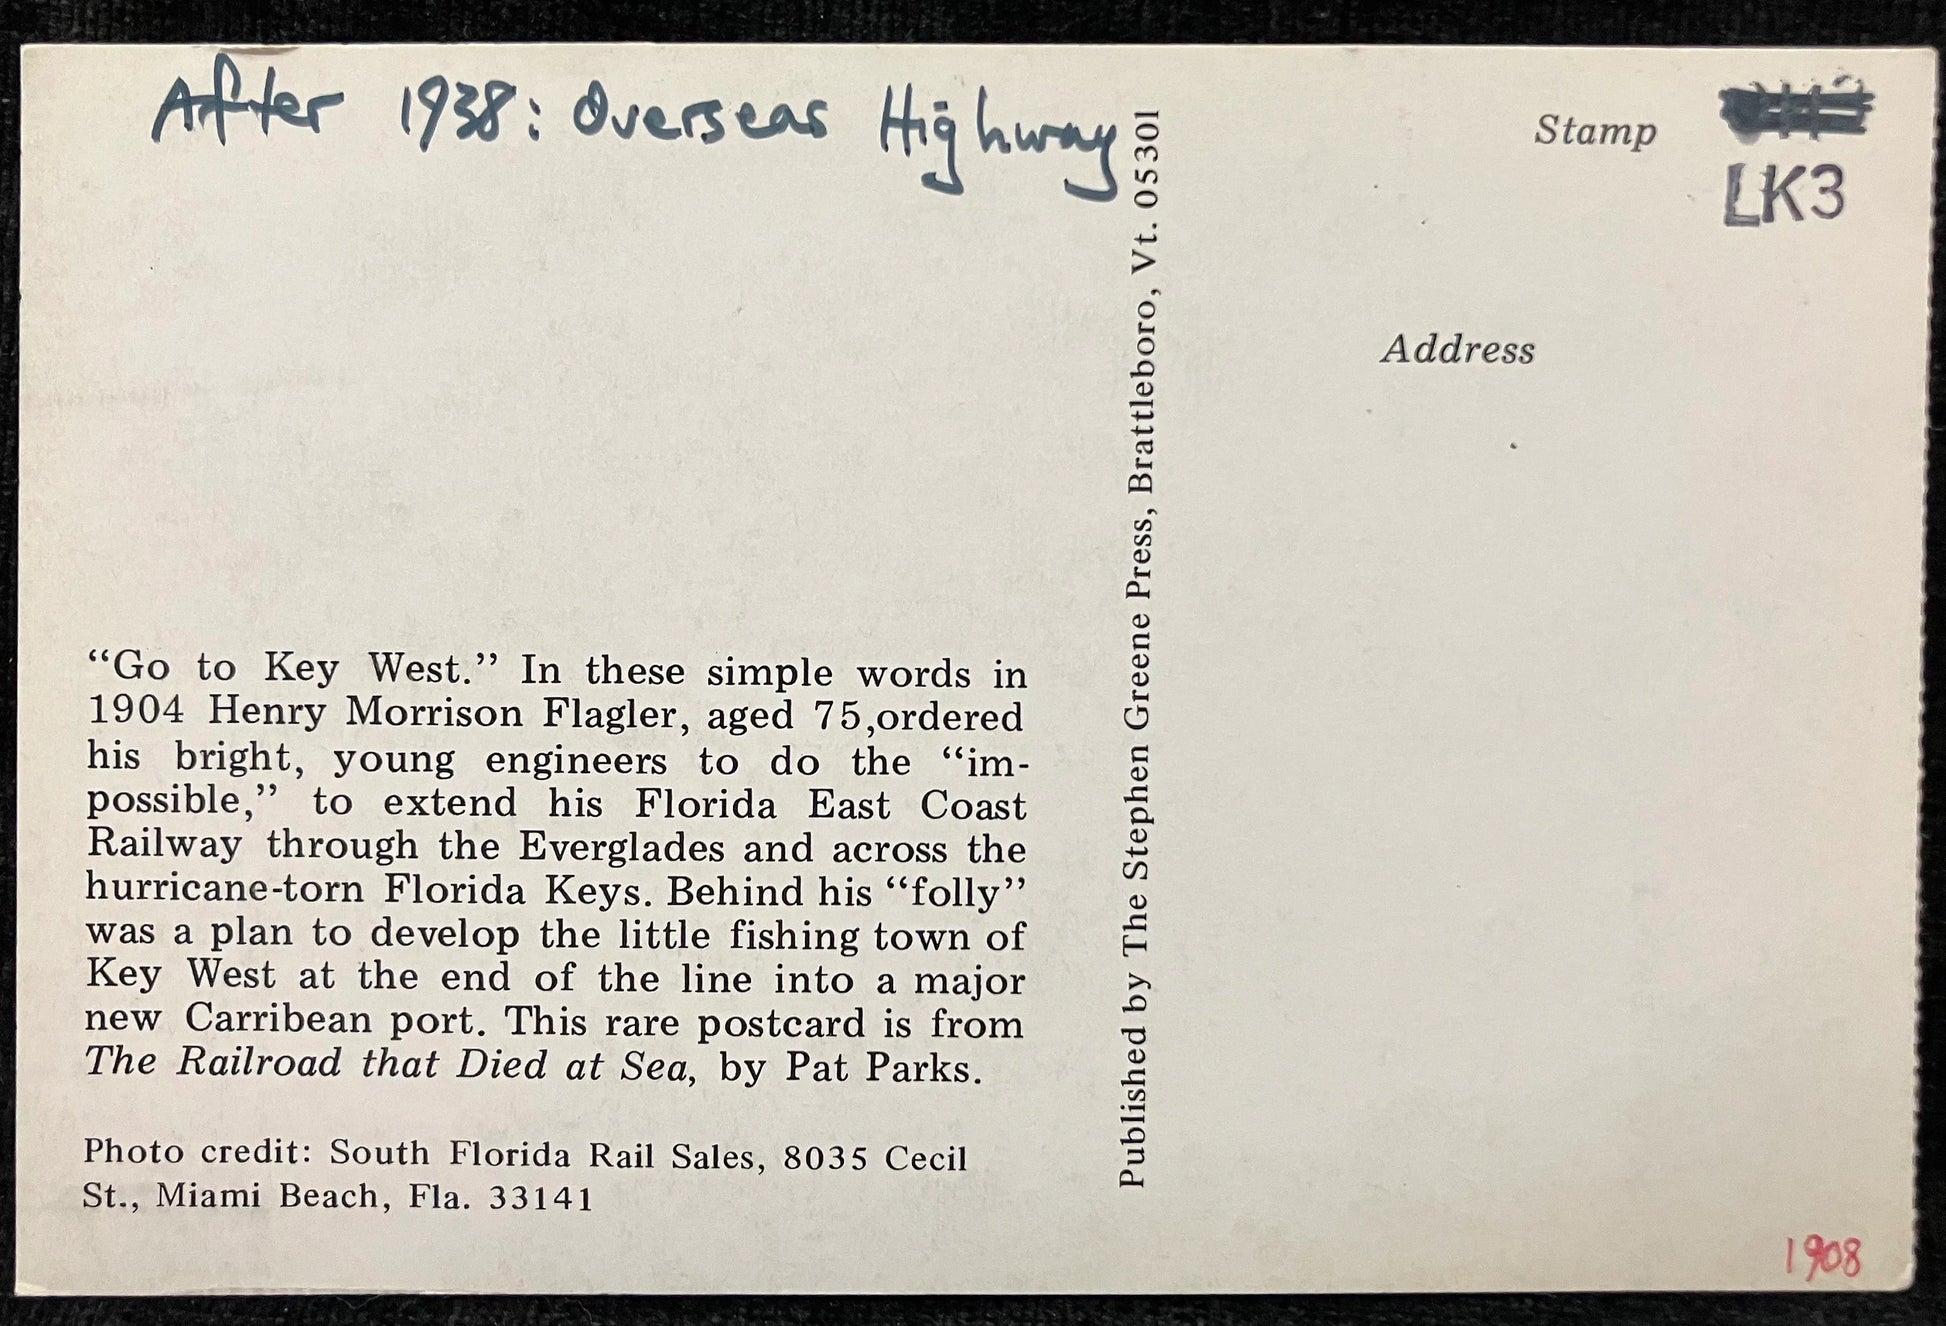 After 1938: Overseas Highway
Stamp
LK3
Address
“Go to Key West.” In these simple words in
1904 Henry Morrison Flagler, aged 75,ordered
his bright, young engineers to do the “im-
possible,” to extend his Florida East Coast
Railway through the Everglades and across the
hurricane-torn Florida Keys. Behind his “folly”
was a plan to develop the little fishing town of
Key West at the end of the line into a major
new Carribean port. This rare postcard is from
The Railroad that Died at Sea, by Pat Parks.
Photo credit: South Florida Rail Sales, 8035 Cecil
St., Miami Beach, Fla. 33141
Published by The Stephen Greene Press, Brattleboro, Vt. 05301
1908